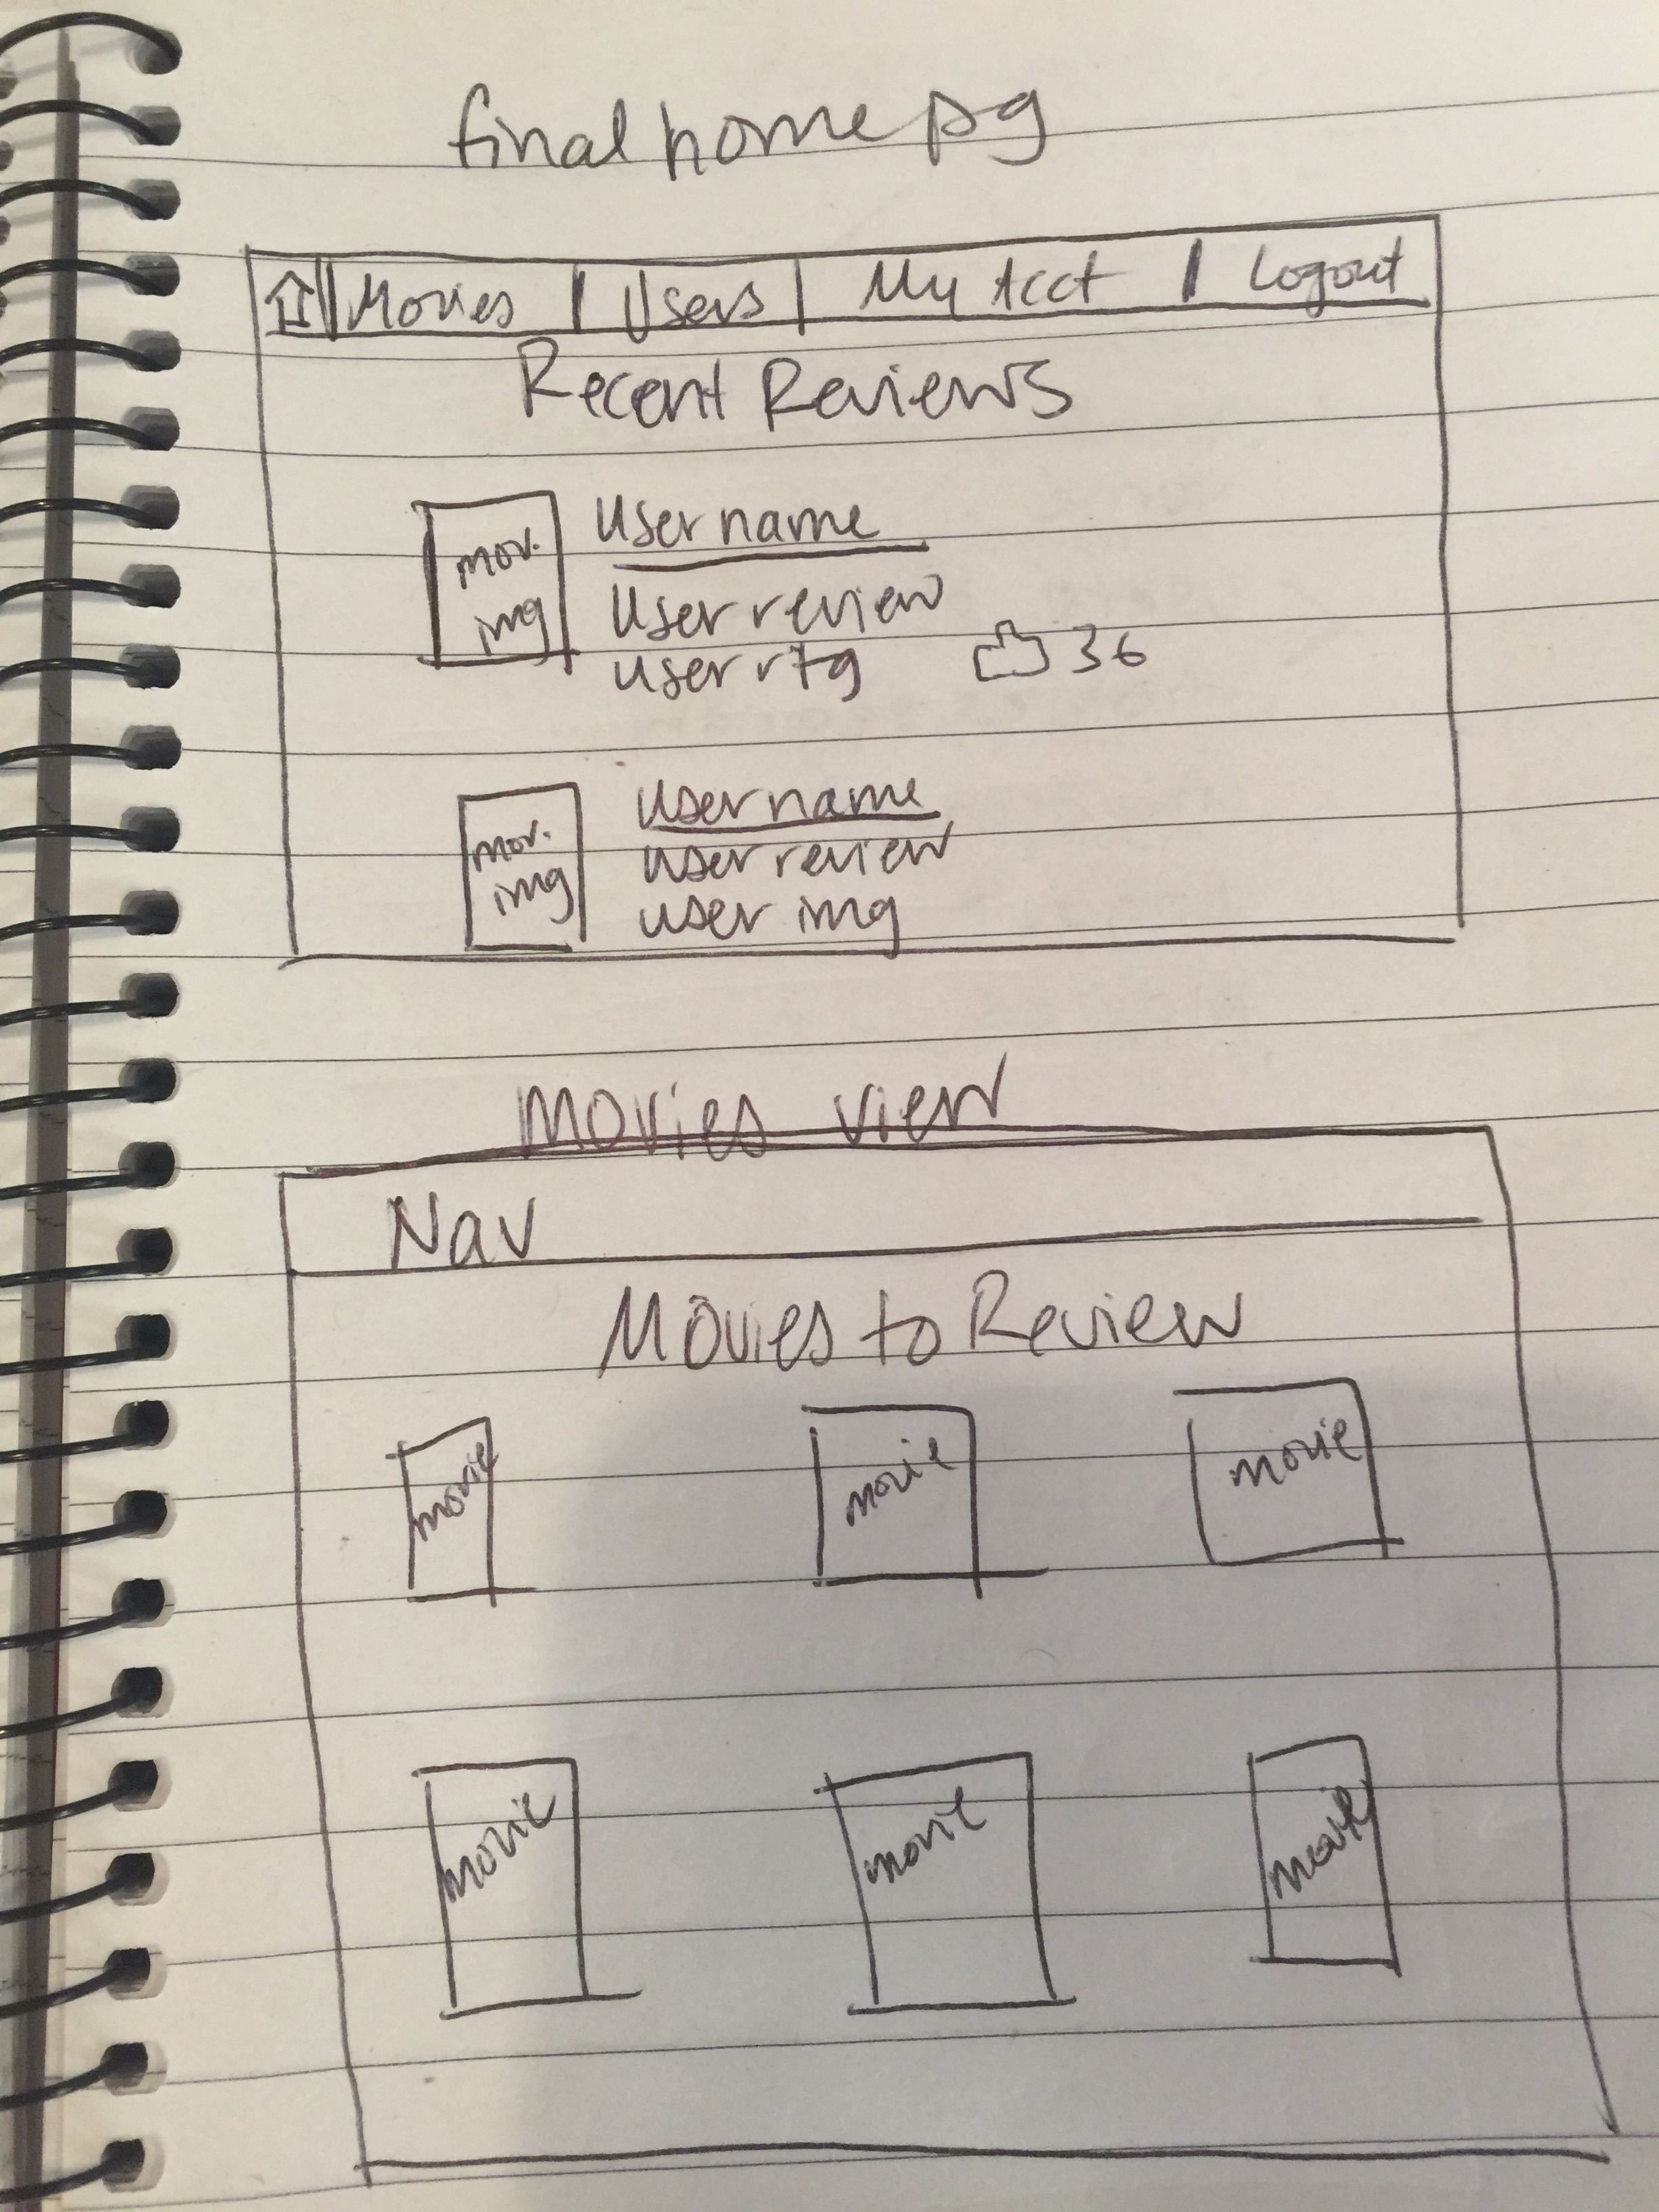 final home pg
Movies | Users | My Acct | Logout
Recent Reviews
mov.
img
username
user review
user rtg
36
mov.
img
username
user review
user img
movies view
Nav
Movies to Review
movie movie movie
movie movie movie